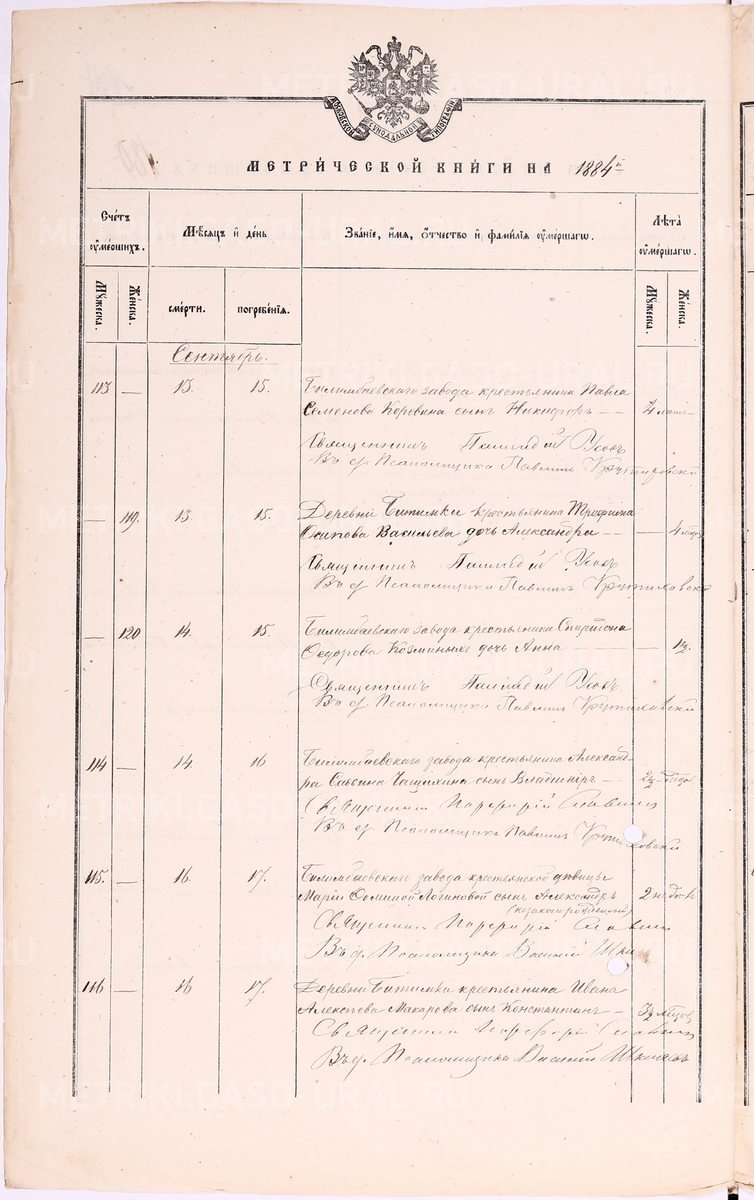 МОСКОВСКОЙ СѴНОДАЛЬНОЙ ТИПОГРАФІИ
МЕТРИ́ЧЕСКОЙ КНИ́ГИ НА 1884й
Сче́тъ ѹ҆ме́ршихъ.
Мѣ́сяцъ и҆ де́нь
Зва́ніе, и҆́мя, ѻ҆́тчество и҆ фами́лія ѹ҆ме́ршагѡ.
Лѣ́та ѹ҆ме́ршагѡ.
Мꙋ́жеска.
Же́нска.
сме́рти.
погребе́нїя.
Мꙋ́жеска.
Же́нска.
Сентябрь.
113 — 13. 15. Билимбаевскаго завода крестьянина Павла
Семенова Коровина сынъ Никифоръ — — 4 лѣтъ —
Священникъ Палладій Усовъ
Въ д. Псаломщика Павлинъ Крутиховскій
— 119. 13. 15. Деревни Битимки крестьянина Трофима
Осипова Васильева дочь Александра — — 4 мѣс.
Священникъ Палладій Усовъ
Въ д. Псаломщика Павлинъ Крутиховскій
— 120 14. 15. Билимбаевскаго завода крестьянина Спиридона
Федорова Козминыхъ дочь Анна — — — 1½.
Священникъ Палладій Усовъ.
Въ д. Псаломщика Павлинъ Крутиховскій
114 — 14. 16 Билимбаевскаго завода крестьянина Александ-
ра Савина Чащихина сынъ Владиміръ — 2½
Священникъ Порфирій Славнин
Въ д. Псаломщика Павлинъ Крутиховскій
115. — 16. 17. Билимбаевскаго завода крестьянской дѣвицы
Маріи Фоминой Логиновой сынъ Александръ 2 нед.
(незаконорожденный)
Священникъ Порфирій Славнин
Въ д. Псаломщика Василій
116 — 16 17. Деревни Битимки крестьянина Ивана
Алексѣева Макарова сынъ Константинъ — 3½ мѣсяц.
Священникъ Порфирій Славнин
Въ д. Псаломщика Василій
METRIKI.GASO-URAL.RU